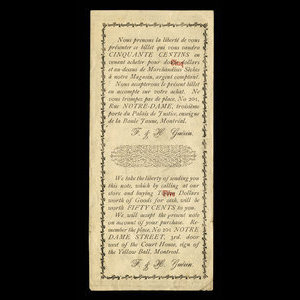 Nous prenons la liberté de vous
présenter ce billet qui vous vaudra
CINQUANTE CENTINS en
venant acheter pour dollars
et au dessus de Marchandises Sèches
à notre Magasin, argent comptant.
Nous accepterons le présent billet
en accompte sur votre achat. Ne
vous trompez pas de place, No 201,
Rue NOTRE-DAME, troisième
porte du Palais de Justice, enseigne
de la Boule Jaune, Montréal.
F. & H. Guérin.
We take the liberty of sending you
this note, which by calling at our
store and buying Five Dollars
worth of Goods for cash, will be
worth FIFTY CENTS to you.
We will accept the present note
on account of your purchase. Re-
member the place, No 201 NOTRE
DAME STREET, 3rd. door
west of the Court House, sign of
the Yellow Ball, Montreal.
F. & H. Guérin.